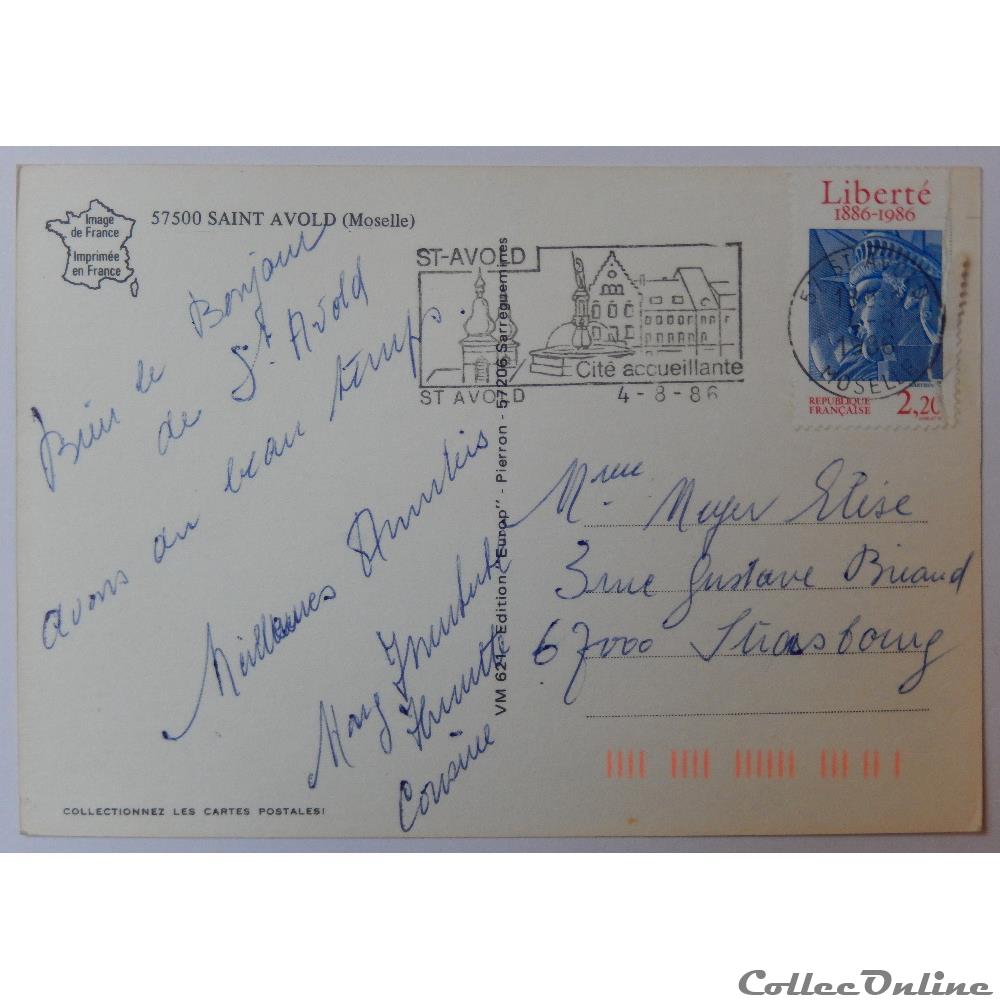 Image
de France
Imprimée
en France
57500 SAINT AVOLD (Moselle)
Bien le Bonjour
de St Avold
avons du beau temps.
Meilleures Amitiés
Mary
Cousine
COLLECTIONNEZ LES CARTES POSTALES!
VM 621 - Edition "Europ" - Pierron - 57206 Sarreguemines
ST-AVOLD
Cité accueillante
ST AVOLD 4-8-86
Liberté
1886-1986
1986
MOSELLE
REPUBLIQUE
FRANÇAISE
2,20
Mme Meyer Elise
3 rue Gustave Briand
67000 Strasbourg
CollecOnline